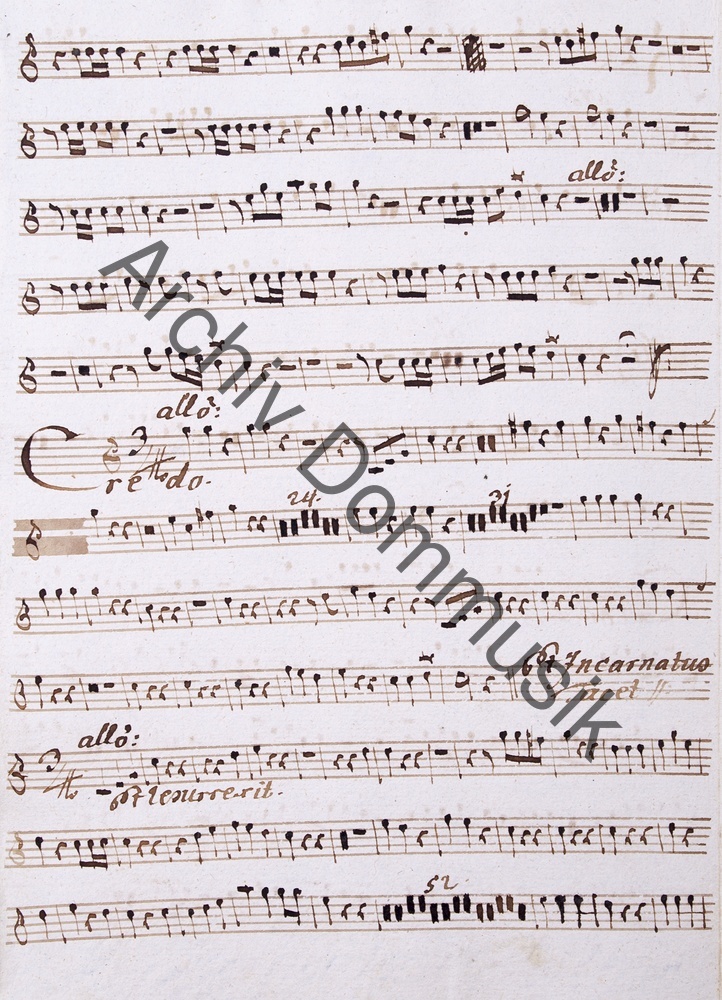 allo:
allo:
Credo.
24.
31
et Incarnatus
tacet
allo:
et Resurrexit.
52.
Archiv Dommusik